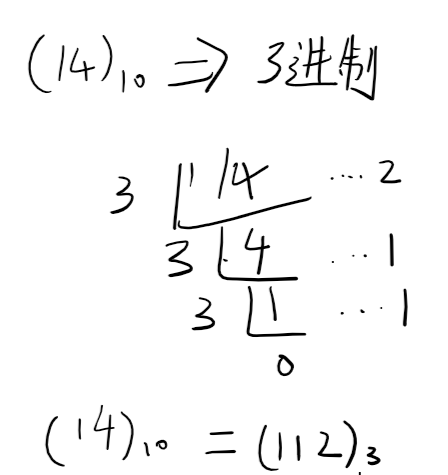 (14)₁₀ ⇒ 3进制
3 14 ····2
3 4 ···1
3 1 ···1
0
(14)₁₀ = (112)₃